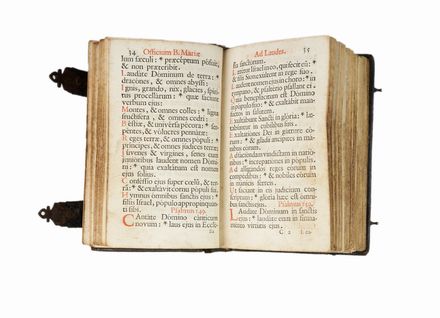 34 Officium B. Mariæ
lum sæculi: * præceptum posuit,
& non præteribit.
Laudate Dominum de terra: *
dracones, & omnes abyssi.
Ignis, grando, nix, glacies, spiri-
tus procellarum: * quæ faciunt
verbum ejus:
Montes, & omnes colles: * ligna
fructifera, & omnes cedri:
Bestiæ, & universa pecora: * ser-
pentes, & volucres pennatæ:
Reges terræ, & omnes populi: *
principes, & omnes judices terræ:
Juvenes & virgines, senes cum
junioribus laudent nomen Domi-
ni: * quia exaltatum est nomen
ejus solius.
Confessio ejus super cœlū, & ter-
rā: * & exaltavit cornu populi sui.
Hymnus omnibus sanctis ejus: *
filiis Israel, populo appropinquan-
ti sibi. Psalmus 149.
Cantate Domino canticum
novum: * laus ejus in Eccle-
Ad Laudes. 35
sia sanctorum.
Lætetur Israel in eo, qui fecit eū: *
& filii Sion exultent in rege suo.
Laudent nomen ejus in choro: * in
tympano, & psalterio psallant ei.
Quia beneplacitum est Domino
in populo suo: * & exaltabit man-
suetos in salutem.
Exultabunt Sancti in gloria: * læ-
tabuntur in cubilibus suis.
Exaltationes Dei in gutture co-
rum: * & gladii ancipites in ma-
nibus eorum.
Ad faciendam vindictam in natio-
nibus: * increpationes in populis.
Ad alligandos reges eorum in
compedibus: * & nobiles eorum
in manicis ferreis.
Ut faciant in eis judicium con-
scriptum: * gloria hæc est omni-
bus sanctis ejus. Psalmus 150.
Laudate Dominum in sanctis
ejus: * laudate eum in firma-
mento virtutis ejus.
C 2